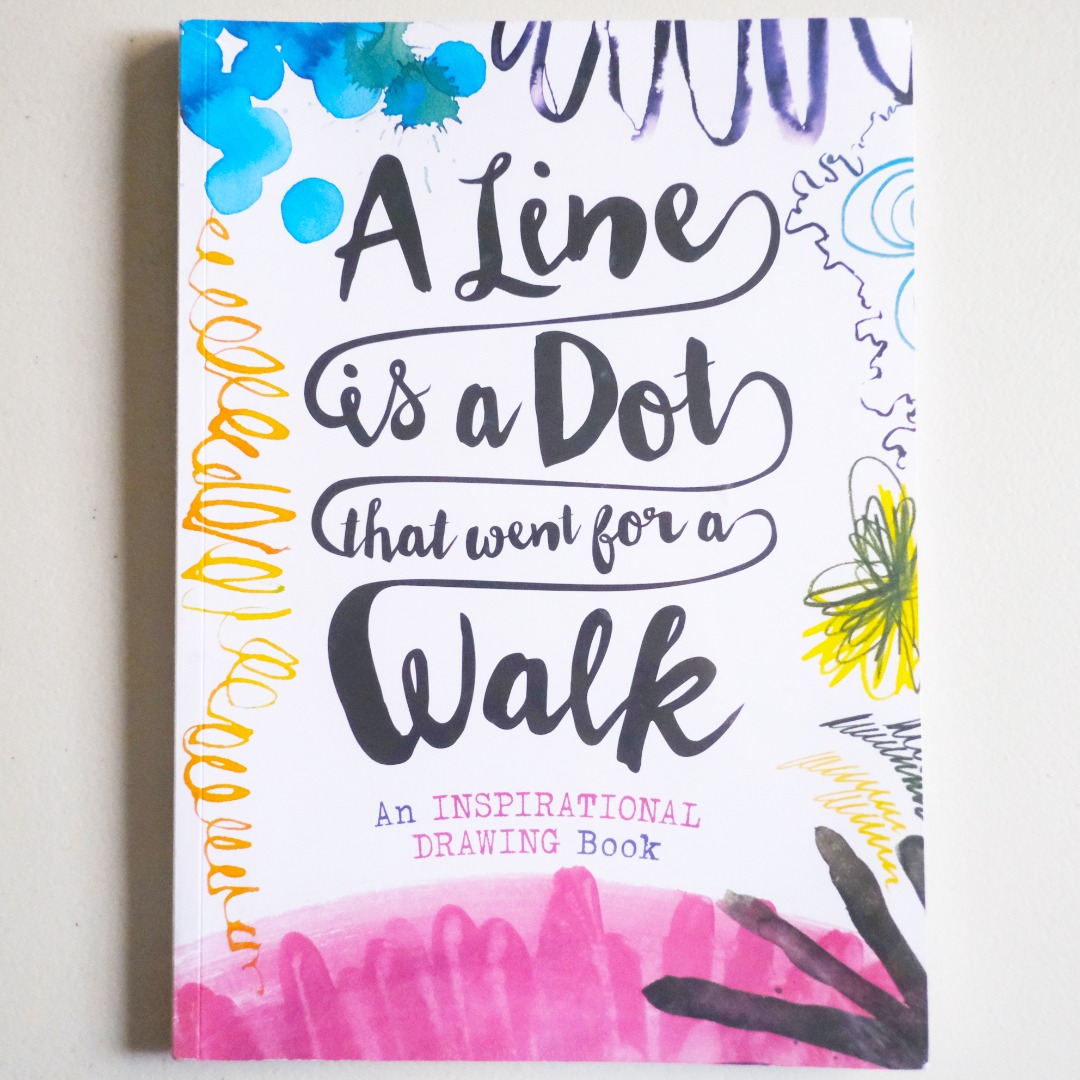 A Line
is a Dot
that went for a
Walk
An INSPIRATIONAL
DRAWING Book